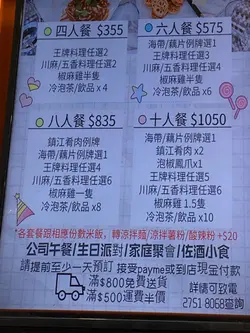 四人餐 $355
王牌料理任選2
川麻/五香料理任選2
椒麻雞半隻
冷泡茶/飲品 x 4
六人餐 $575
海帶/藕片例牌選1
王牌料理任選3
川麻/五香料理任選4
椒麻雞半隻
冷泡茶/飲品 x6
八人餐 $835
鎮江肴肉例牌
海帶/藕片例牌選1
王牌料理任選4
川麻/五香料理任選5
椒麻雞一隻
冷泡茶/飲品 x8
十人餐 $1050
海帶/藕片例牌選1
鎮江肴肉 x2
泡椒鳳爪x1
王牌料理任選5
川麻/五香料理任選6
椒麻雞 1.5隻
冷泡茶/飲品 x10
*各套餐跟相應份數米飯，轉涼拌麵/涼拌薯粉/酸辣粉 +$20
公司午餐/生日派對/家庭聚會/佐酒小食
請提前至少一天預訂 接受payme或到店現金付款
滿$800免費送貨
滿$500運費半價
詳情可致電
2751 8068查詢